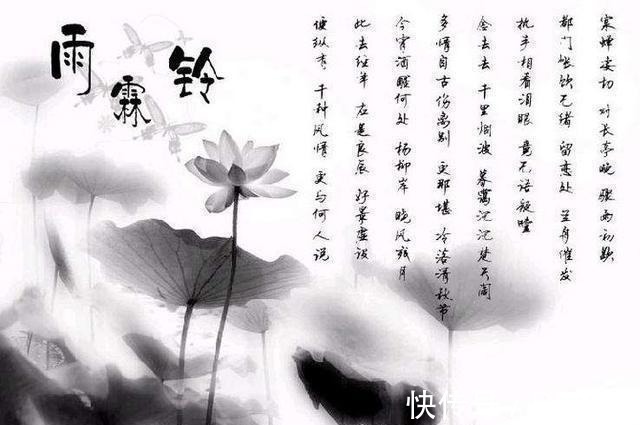 雨霖铃
寒蝉凄切 对长亭晚 骤雨初歇
都门帐饮无绪 留恋处 兰舟催发
执手相看泪眼 竟无语凝噎
念去去 千里烟波 暮霭沉沉楚天阔
多情自古伤离别 更那堪 冷落清秋节
今宵酒醒何处 杨柳岸 晓风残月
此去经年 应是良辰 好景虚设
便纵有 千种风情 更与何人说
快